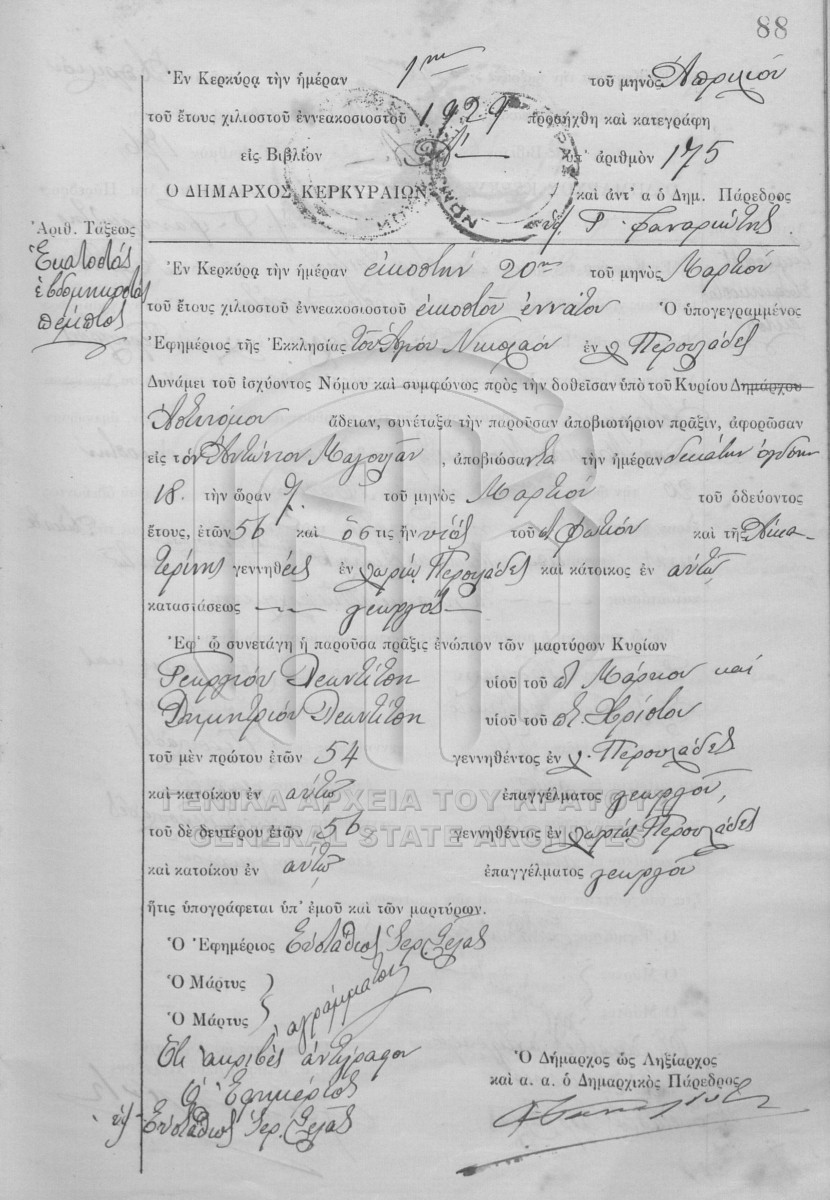 88
Ἐν Κερκύρᾳ τὴν ἡμέραν 1ην τοῦ μηνὸς Ἀπριλίου
τοῦ ἔτους χιλιοστοῦ ἐννεακοσιοστοῦ 1929 προσήχθη καὶ κατεγράφη
εἰς Βιβλίον ὑπ' ἀριθμὸν 175
Ο ΔΗΜΑΡΧΟΣ ΚΕΡΚΥΡΑΙΩΝ καὶ ἀντ' α ὁ Δημ. Πάρεδρος
Γ. Φαναριώτης
Ἀριθ. Τάξεως
Ἑκατοστὸς
ἑβδομηκοστὸς
πέμπτος
Ἐν Κερκύρᾳ τὴν ἡμέραν εἰκοστὴν 20ην τοῦ μηνὸς Μαρτίου
τοῦ ἔτους χιλιοστοῦ ἐννεακοσιοστοῦ εἰκοστοῦ ἐννάτου Ὁ ὑπογεγραμμένος
Ἐφημέριος τῆς Ἐκκλησίας τοῦ Ἁγίου Νικολάου ἐν χ Περουλάδες
Δυνάμει τοῦ ἰσχύοντος Νόμου καὶ συμφώνως πρὸς τὴν δοθεῖσαν ὑπὸ τοῦ Κυρίου Δημάρχου
Ἀστυνόμου ἄδειαν, συνέταξα τὴν παροῦσαν ἀποβιωτήριον πρᾶξιν, ἀφορῶσαν
εἰς τὸν Ἀντώνιον , ἀποβιώσαντα τὴν ἡμέραν δεκάτην ὀγδόην
18 τὴν ὥραν 7 τοῦ μηνὸς Μαρτίου τοῦ ὁδεύοντος
ἔτους, ἐτῶν 56 καὶ ὅστις ἦν υἱὸς τοῦ Φωτίου καὶ τῆς Αἰκα-
τερίνης γεννηθεὶς ἐν χωρίῳ Περουλάδες καὶ κάτοικος ἐν αὐτῷ
καταστάσεως — γεωργὸς —
Ἐφ' ᾧ συνετάγη ἡ παροῦσα πρᾶξις ἐνώπιον τῶν μαρτύρων Κυρίων
Γεωργίου Λεοντίτση υἱοῦ τοῦ Μάρκου καὶ
Δημητρίου Λεοντίτση υἱοῦ τοῦ Χρίστου
τοῦ μὲν πρώτου ἐτῶν 54 γεννηθέντος ἐν χ. Περουλάδες
καὶ κατοίκου ἐν αὐτῷ ἐπαγγέλματος γεωργοῦ,
ΓΕΝΙΚΑ ΑΡΧΕΙΑ ΤΟΥ ΚΡΑΤΟΥΣ
τοῦ δὲ δευτέρου ἐτῶν 56 γεννηθέντος ἐν χωρίῳ Περουλάδες
GENERAL STATE ARCHIVES
καὶ κατοίκου ἐν αὐτῷ ἐπαγγέλματος γεωργοῦ
ἥτις ὑπογράφεται ὑπ' ἐμοῦ καὶ τῶν μαρτύρων.
Ὁ Ἐφημέριος Εὐστάθιος Ἱερ.
Ὁ Μάρτυς
Ὁ Μάρτυς ἀγράμματοι
Ὅτι ἀκριβὲς ἀντίγραφον
Ὁ Ἐφημέριος
Εὐστάθιος Ἱερ.
Ὁ Δήμαρχος ὡς Ληξίαρχος
καὶ α. α. ὁ Δημαρχικὸς Πάρεδρος